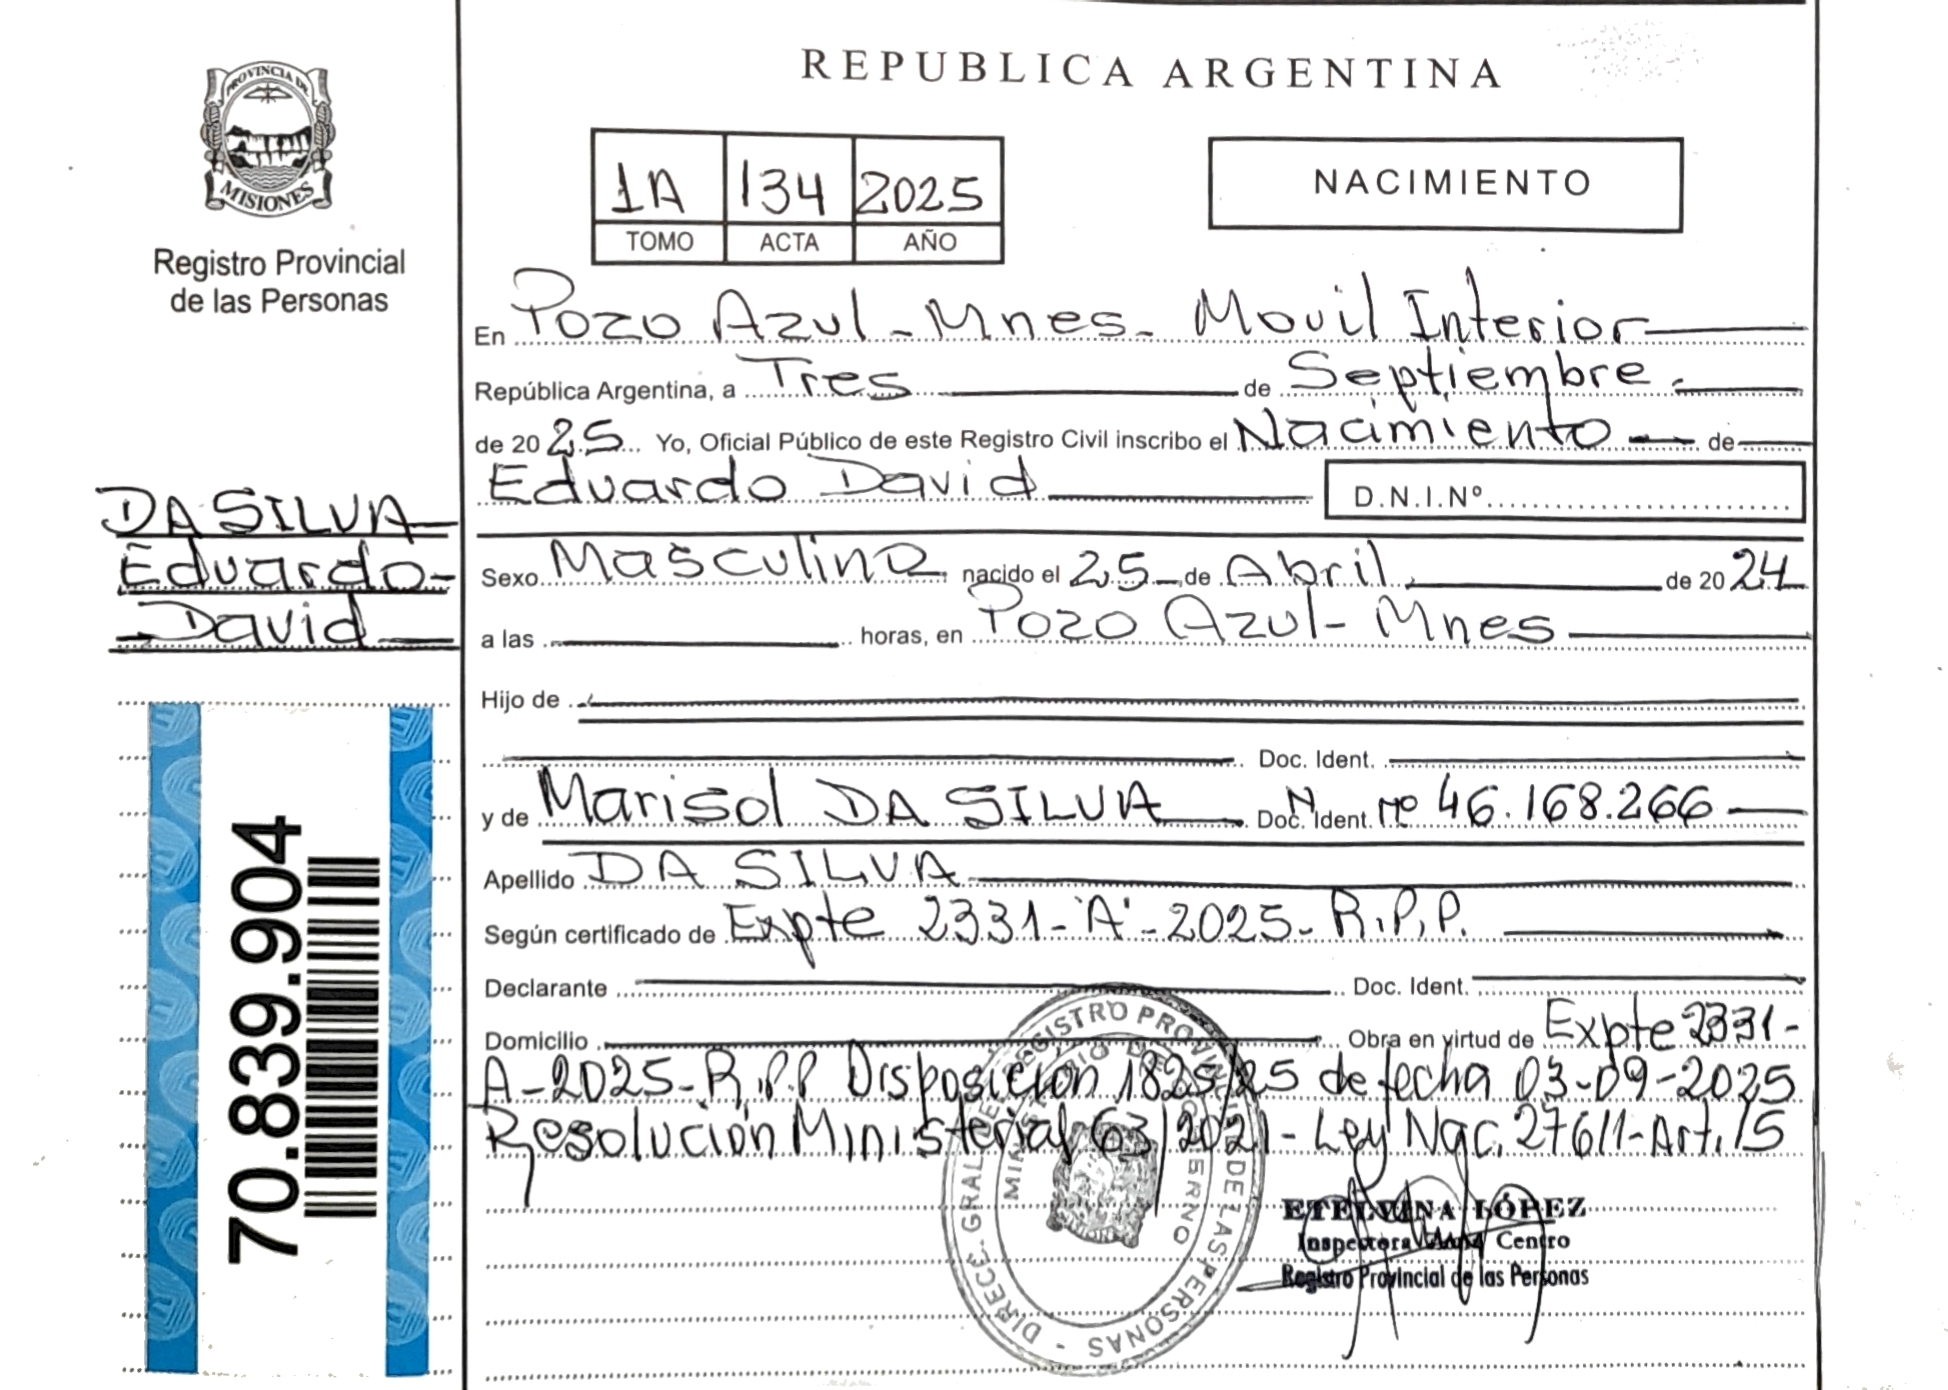 PROVINCIA DE
MISIONES
Registro Provincial
de las Personas
DA SILVA
Eduardo
David
70.839.904
REPUBLICA ARGENTINA
1A 134 2025
TOMO ACTA AÑO
NACIMIENTO
En Pozo Azul - Mnes - Movil Interior
República Argentina, a Tres de Septiembre
de 2025 Yo, Oficial Público de este Registro Civil inscribo el Nacimiento de
Eduardo David D.N.I.Nº
Sexo Masculino nacido el 25 de Abril de 2024
a las horas, en Pozo Azul - Mnes
Hijo de
Doc. Ident.
y de Marisol DA SILVA Doc. N Ident. nº 46.168.266
Apellido DA SILVA
Según certificado de Expte 2331-'A'-2025- R.P.P.
Declarante Doc. Ident.
Domicilio Obra en virtud de Expte 2331-
A-2025-R.P.P Disposición 1825/25 de fecha 03-09-2025
Resolución Ministerial 63/2021 - Ley Nac. 27611-Art. 15
DIRECC. GRAL. DEL REGISTRO PROVINCIAL DE LAS PERSONAS -
MINISTERIO DE GOBIERNO
ETELVINA LÓPEZ
Inspectora Centro
Registro Provincial de las Personas